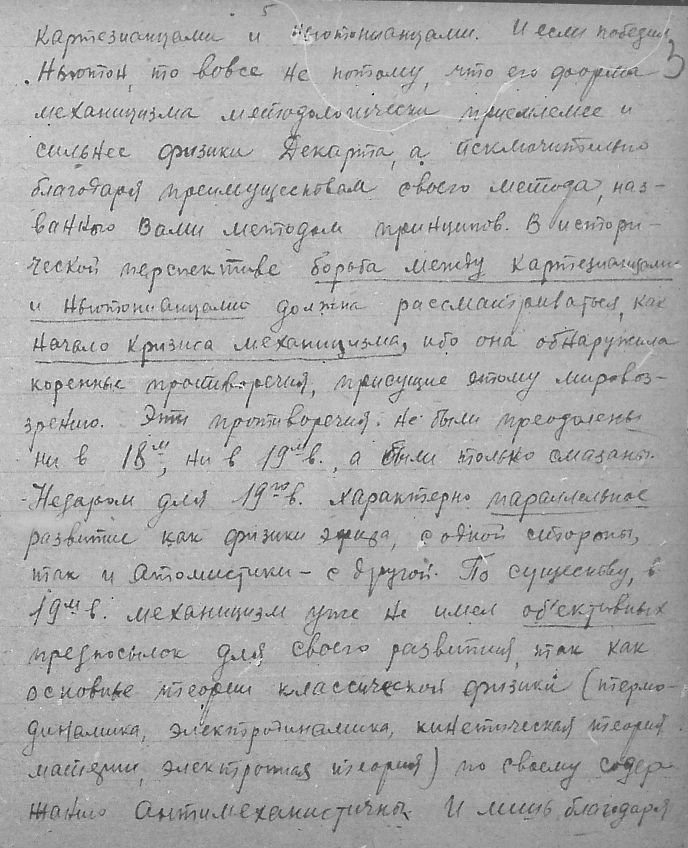 5
картезианцами и ньютонианцами. И если победил
3
Ньютон, то вовсе не потому, что его форма
механицизма методологически приемлемее и
сильнее физики Декарта, а исключительно
благодаря преимуществам своего метода, наз-
ванного Вами методом принципов. В истори-
ческой перспективе борьба между картезианцами
и ньютонианцами должна рассматриваться, как
начало кризиса механицизма, ибо она обнаружила
коренные противоречия, присущие этому мировоз-
зрению. Эти противоречия не были преодолены
ни в 18м, ни в 19м в., а были только смазаны.
Недаром для 19го в. характерно параллельное
развитие как физики эфира, с одной стороны,
так и атомистики – с другой. По существу, в
19м в. механицизм уже не имел об'ективных
предпосылок для своего развития, так как
основные теории классической физики (термо-
динамика, электродинамика, кинетическая теория
материи, электронная теория) по своему содер-
жанию антимеханистичны. И лишь благодаря